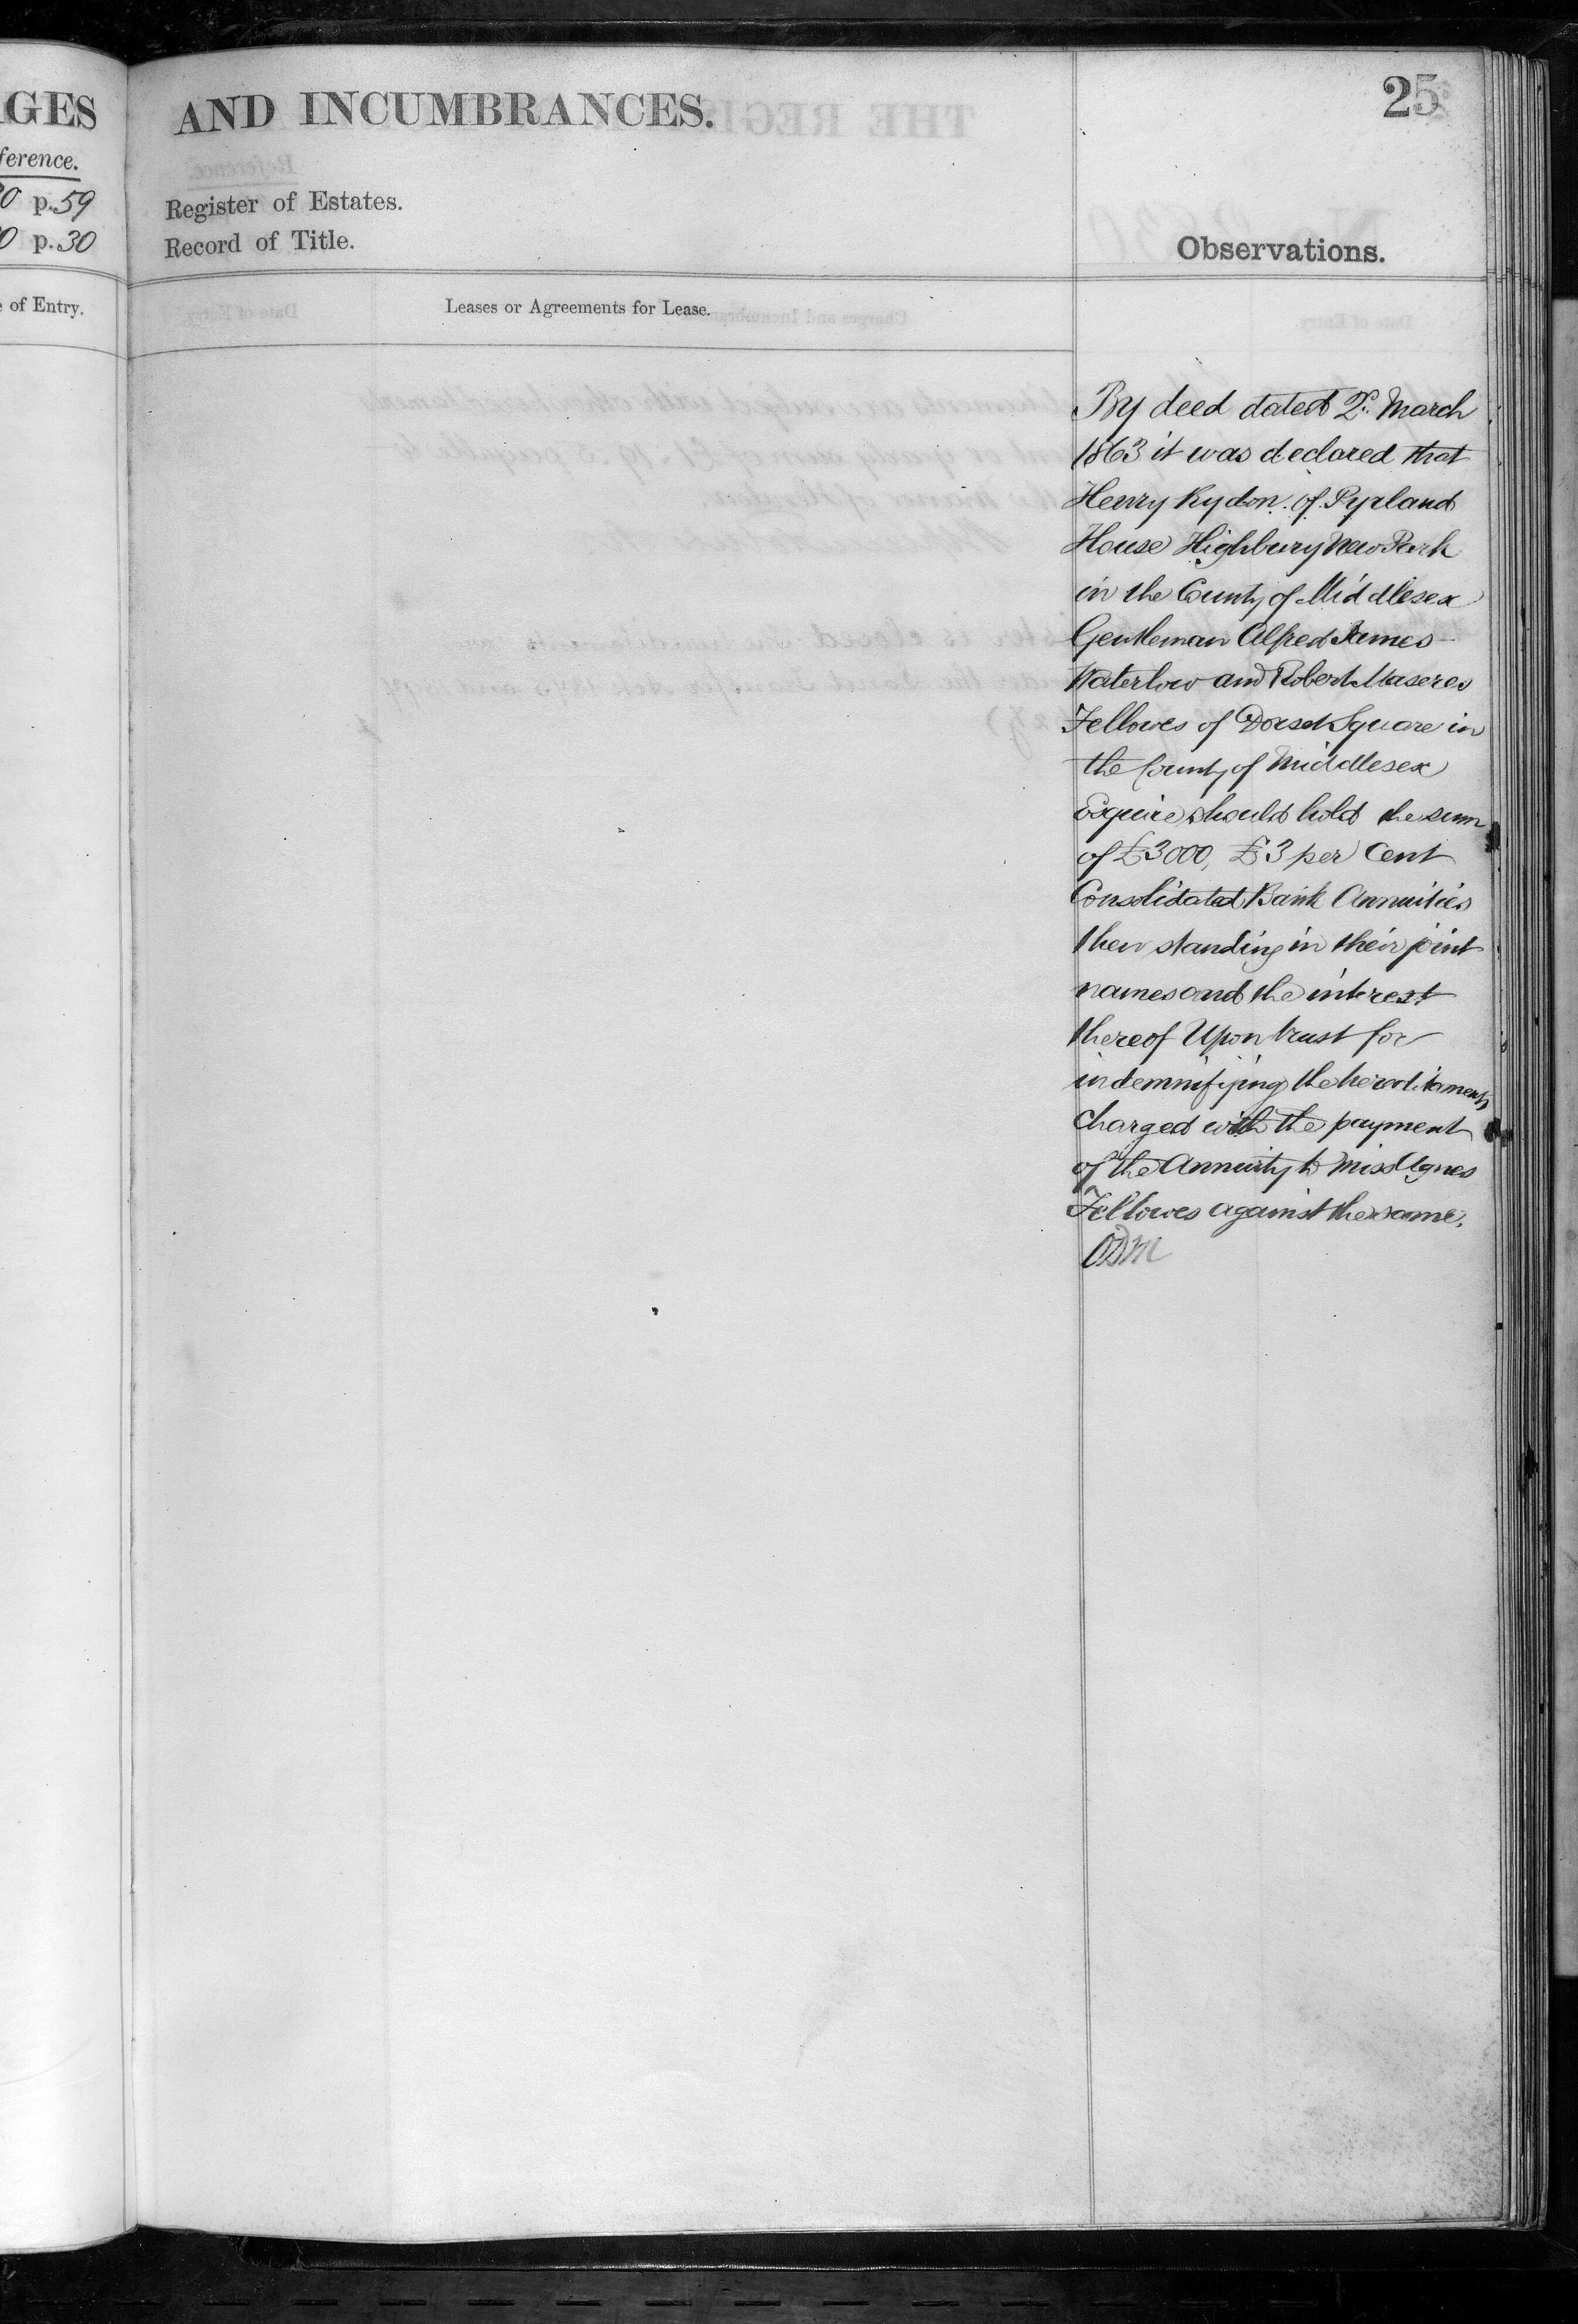 GES
ference.
0 p.59
0 p.30
e of Entry.
AND INCUMBRANCES.
25
Register of Estates.
Record of Title.
Observations.
Leases or Agreements for Lease.
By deed dated 2d. March
1863 it was declared that
Henry Rydon of Pyrland
House Highbury New Park
in the County of Middlesex
Gentleman Alfred James
Waterlow and Robert Maseres
Fellowes of Dorset Square in
the County of Middlesex
Esquire should hold the sum
of £3000, £3 per Cent
Consolidated Bank Annuities
then standing in their joint
names and the interest
thereof Upon trust for
indemnifying the hereditaments
charged with the payment
of the Annuity to Miss Agnes
Fellowes against the same.